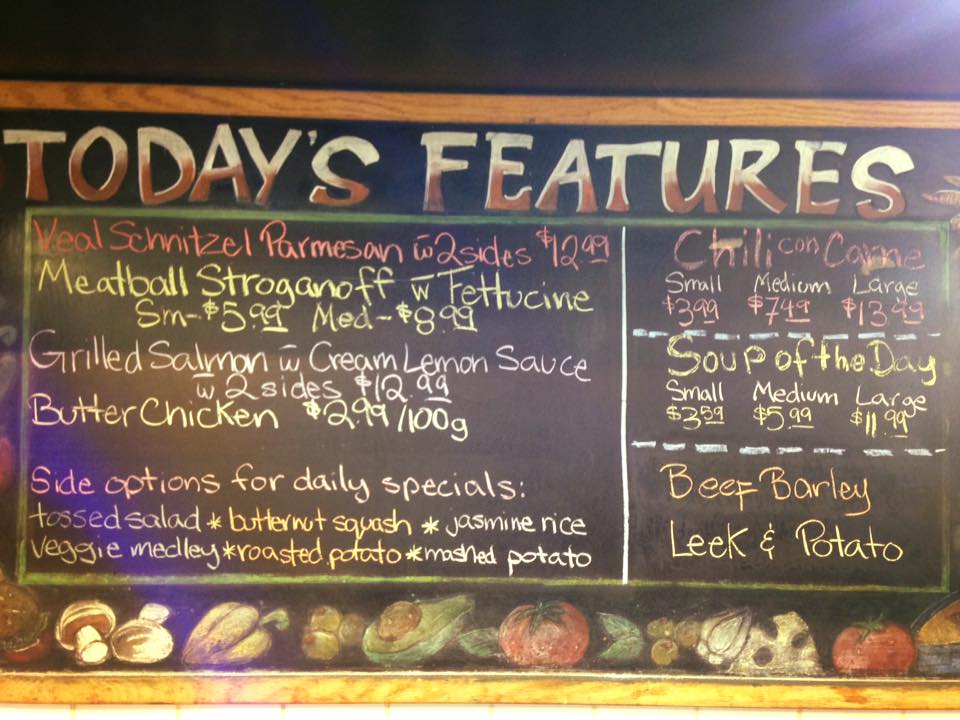 TODAY'S FEATURES
Veal Schnitzel Parmesan w 2 sides $12.99
Meatball Stroganoff w Fettucine
Sm-$5.99 Med-$8.99
Grilled Salmon w Cream Lemon Sauce
w 2 sides $12.99
Butter Chicken $2.99/100g
Side options for daily specials:
tossed salad * butternut squash * jasmine rice
veggie medley * roasted potato * mashed potato
Chili con Carne
Small Medium Large
$3.99 $7.49 $13.99
Soup of the Day
Small Medium Large
$3.59 $5.99 $11.99
Beef Barley
Leek & Potato